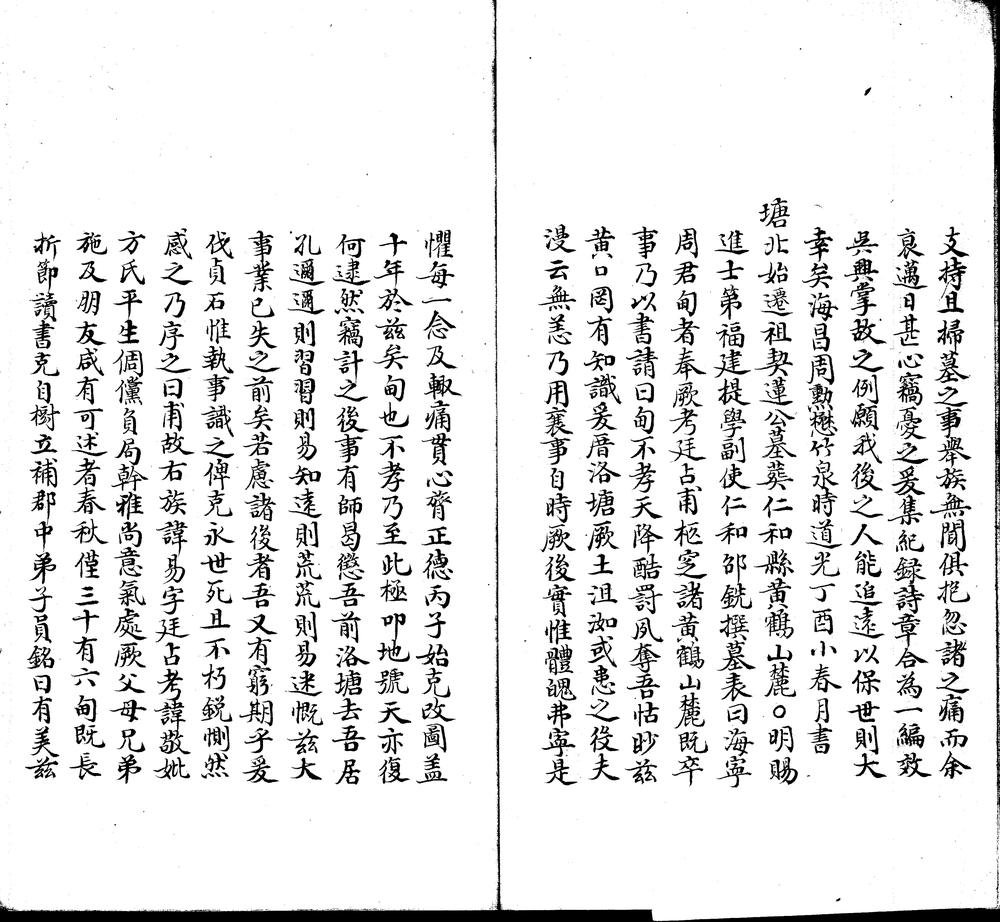 支持且掃墓之事舉族無間俱抱忽諸之痛而余
衰邁日甚心竊憂之爰集紀録詩章合為一編效
吳興掌故之例願我後之人能追遠以保世則大
幸矣海昌周勲懋竹泉時道光丁酉小春月書
塘北始遷祖契蓮公墓葬仁和縣黄鶴山麓○明賜
進士第福建提學副使仁和邵銳撰墓表曰海寧
周君甸者奉厥考廷占甫柩窆諸黄鶴山麓既卒
事乃以書請曰甸不孝天降酷罰夙奪吾怙眇兹
黄口罔有知識爰厝洛塘厥土沮洳或患之役夫
漫云無恙乃用襄事自時厥後實惟體魄弗寧是
懼每一念及輙痛貫心膂正德丙子始克改圖盖
十年於兹矣甸也不孝乃至此極叩地號天亦復
何逮然竊計之後事有師曷懲吾前洛塘去吾居
孔邇邇則習習則易知遠則荒荒則易迷慨兹大
事業已失之前矣若慮諸後者吾又有窮期乎爰
伐貞石惟執事識之俾克永世死且不朽銳惻然
感之乃序之曰甫故右族諱易字廷占考諱敬妣
方氏平生倜儻負局幹雅尚意氣處厥父母兄弟
施及朋友咸有可述者春秋僅三十有六甸既長
折節讀書克自樹立補郡中弟子員銘曰有美兹